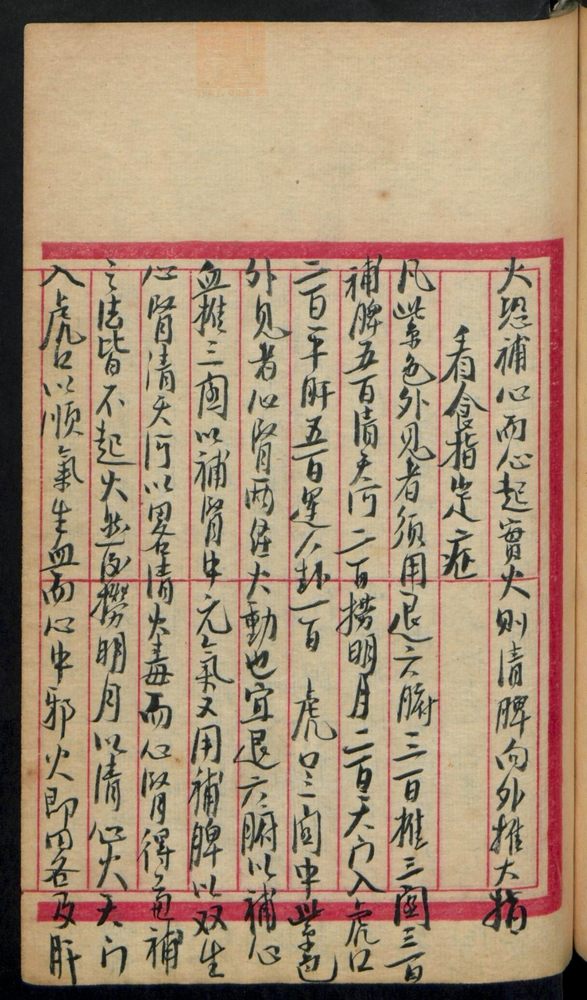 火恐補心而心起實火則清脾向外推大指
看食指定症
凡紫色外見者須用退六腑三百推三關三百
補脾五百清天河二百撈明月二百天门入虎口
二百平肝五百運八卦一百 虎口三關中紫色
外見者心腎两经火動也宜退六腑以補心
血推三関以補腎中元氣又用補脾以双生
心腎清天河以畧清火毒而心腎得兼補
之法皆不起火然後撈明月以清心火天门
入虎口以順氣生血而心中邪火即畧及肝